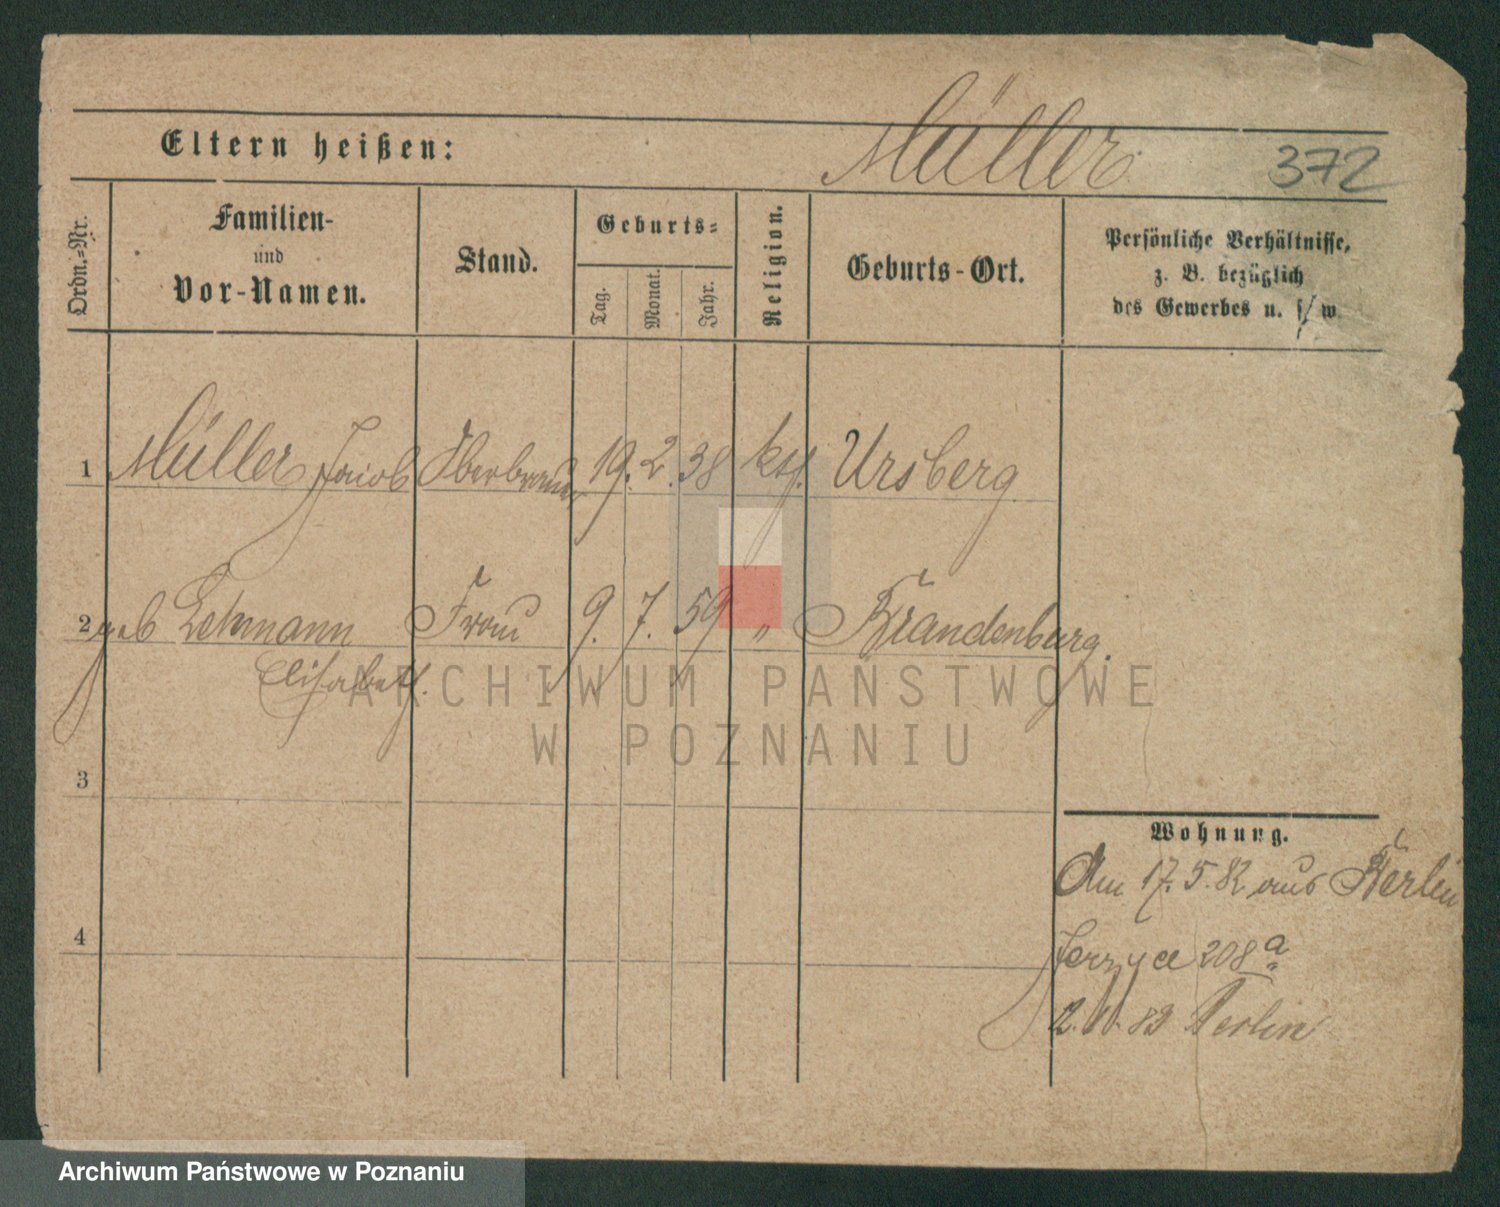 Müller
Eltern heißen:
372
Ordn.=Nr.
Familien-
und
Vor-Namen.
Stand.
Geburts=
Tag.
Monat.
Jahr.
Religion.
Geburts-Ort.
Persönliche Verhältnisse,
z. B. bezüglich
des Gewerbes u. s/w
1 Müller Jacob Oberbrauer 19. 2. 38 kth. Ursberg
2 geb Lehmann Frau 9. 7. 59 " Brandenburg.
Elisabeth.
3
4
Wohnung.
Am 17. 5. 82 aus Berlin
Jerzyce 208a
2. 11. 82 Berlin
ARCHIWUM PAŃSTWOWE
W POZNANIU
Archiwum Państwowe w Poznaniu